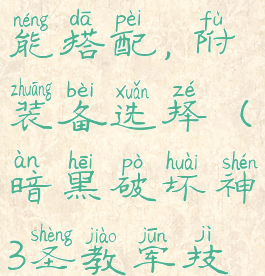 néng dā pèi fù
能搭配，附
zhuāng bèi xuǎn zé
装备选择（
àn hēi pò huài shén
暗黑破坏神
shèng jiào jūn jì
3圣教军技